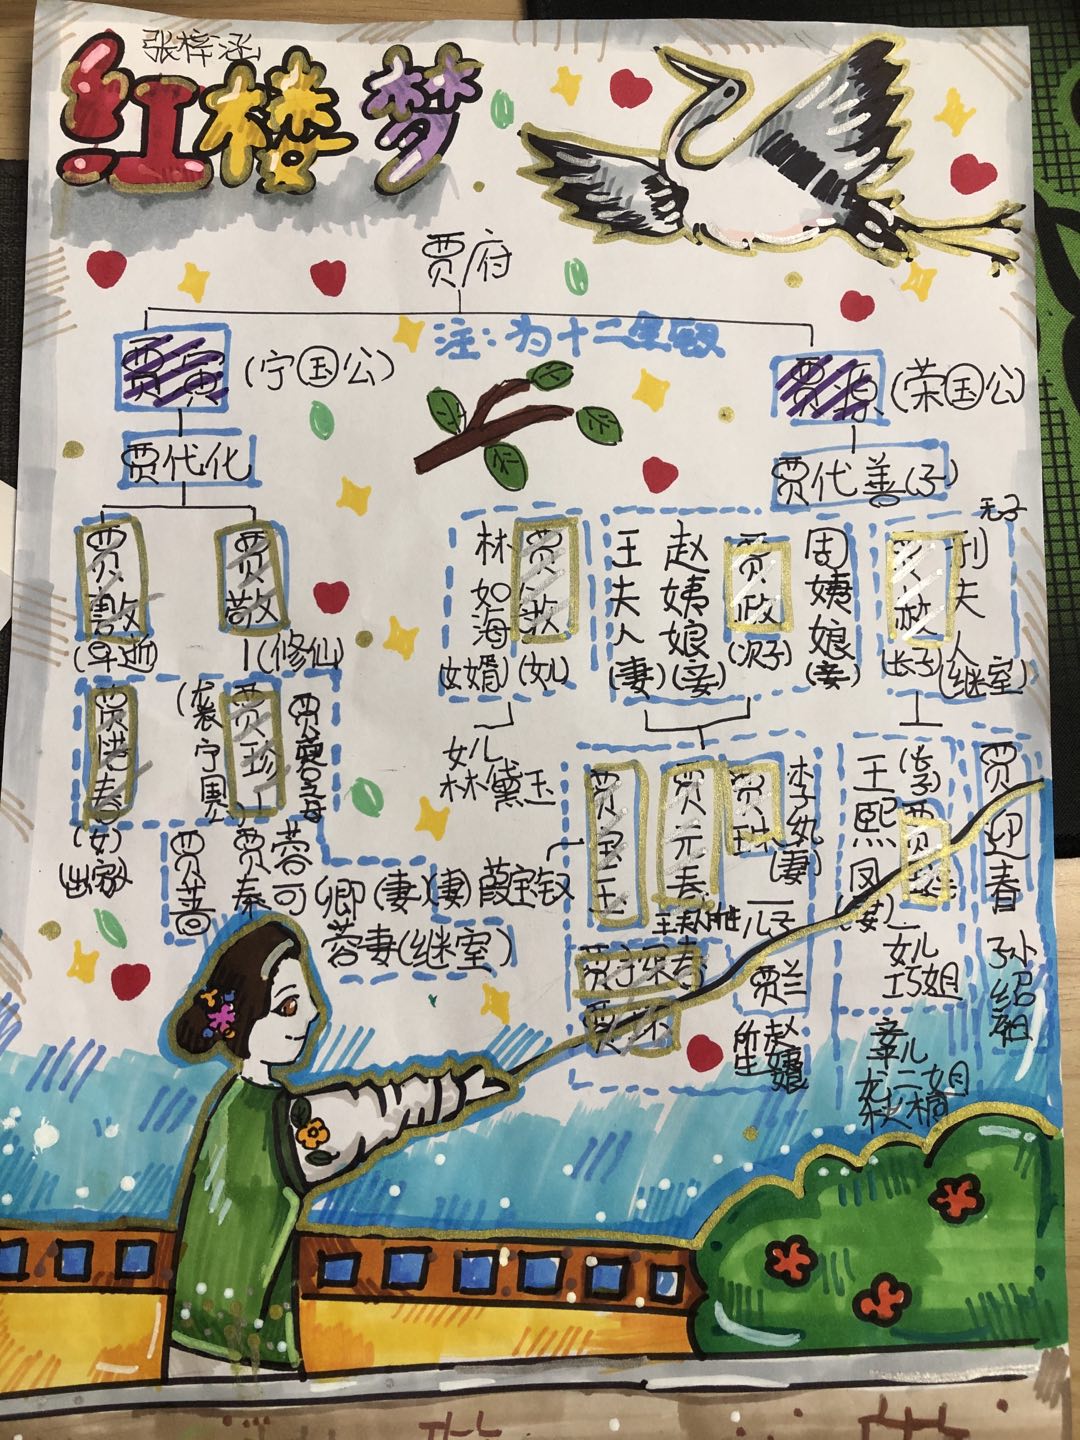 张梓涵
红楼梦
贾府
注:为十二金钗
贾演(宁国公)
贾源(荣国公)
贾代化
贾代善(子)
贾敷
(早逝)
贾敬
(修仙)
林如海
(女婿)
贾敏
(女儿)
王夫人
(妻)
赵姨娘
(妾)
贾政
(次子)
周姨娘
(妾)
贾赦
(长子)
无子
刑夫人
(继室)
贾惜春
(女)
出家
(袭宁国
贾珍
贾蔷
贾蓉
秦可卿(妻)
(妻)薛宝钗
蓉妻(继室)
女儿
林黛玉
贾宝玉
贾元春
王夫人所生
贾珠
李纨
(妻)
儿子
贾兰
贾探春
贾环
赵姨娘
所生
王熙凤
(妻)
(子)
贾琏
女儿
巧姐
尤二姐
秋桐
贾迎春
孙绍祖